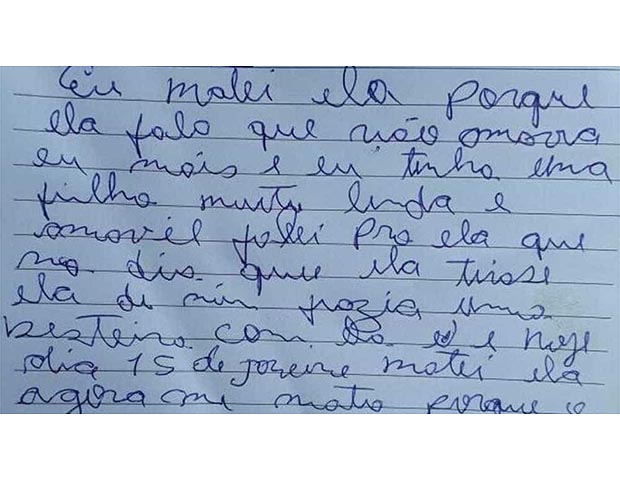 Eu matei ela porque
ela falo que não amava
eu mais e eu tinha uma
filha muito linda e
amovel falei pra ela que
no dia que ela tirase
ela de min fazia uma
besteira com ela e hoje
dia 15 de janeiro matei ela
agora mi mato porque o